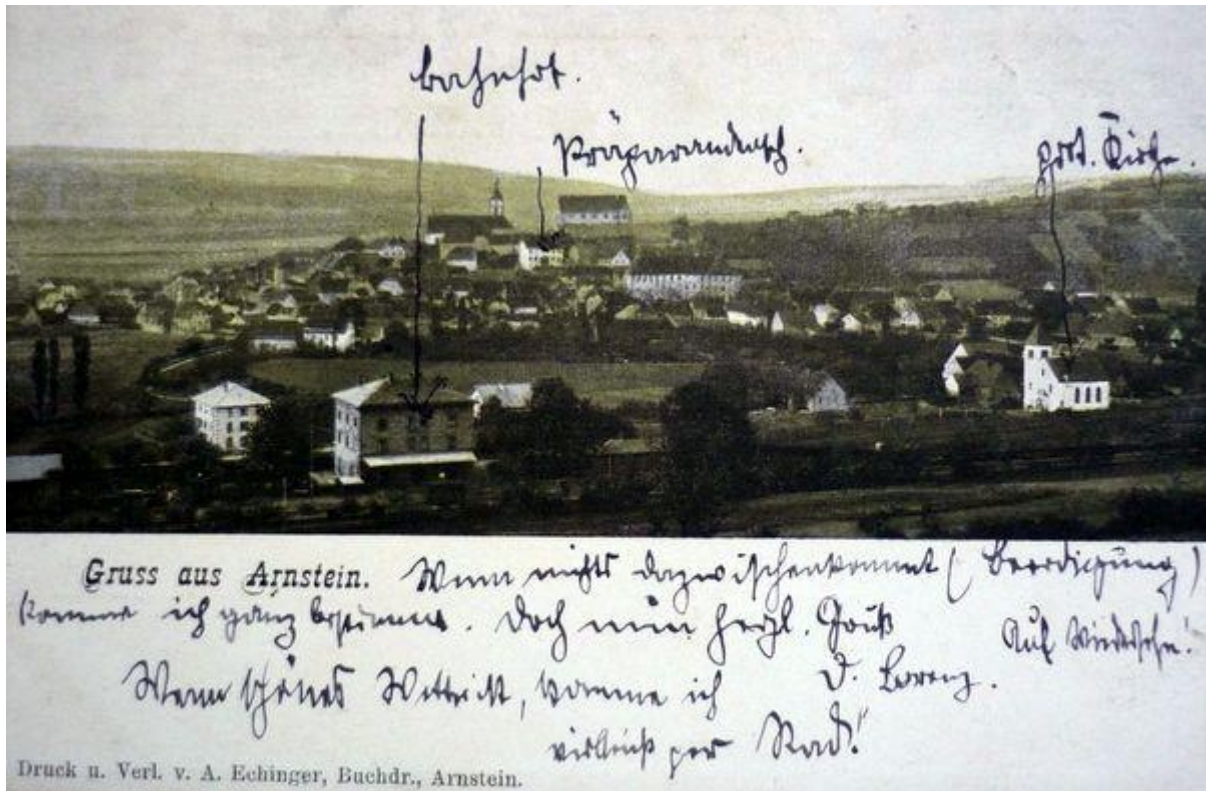 Bahnhof.
Präparandensch.
prot. Kirche.
Gruss aus Arnstein. Wenn nichts dazwischenkommt (Beerdigung)
komme ich ganz bestimmt. Doch nun herzl. Gruß
Auf Wiedersehn!
D. Lorenz.
Wenn schönes Wetter ist, komme ich
vielleicht per Rad!
Druck u. Verl. v. A. Echinger, Buchdr., Arnstein.